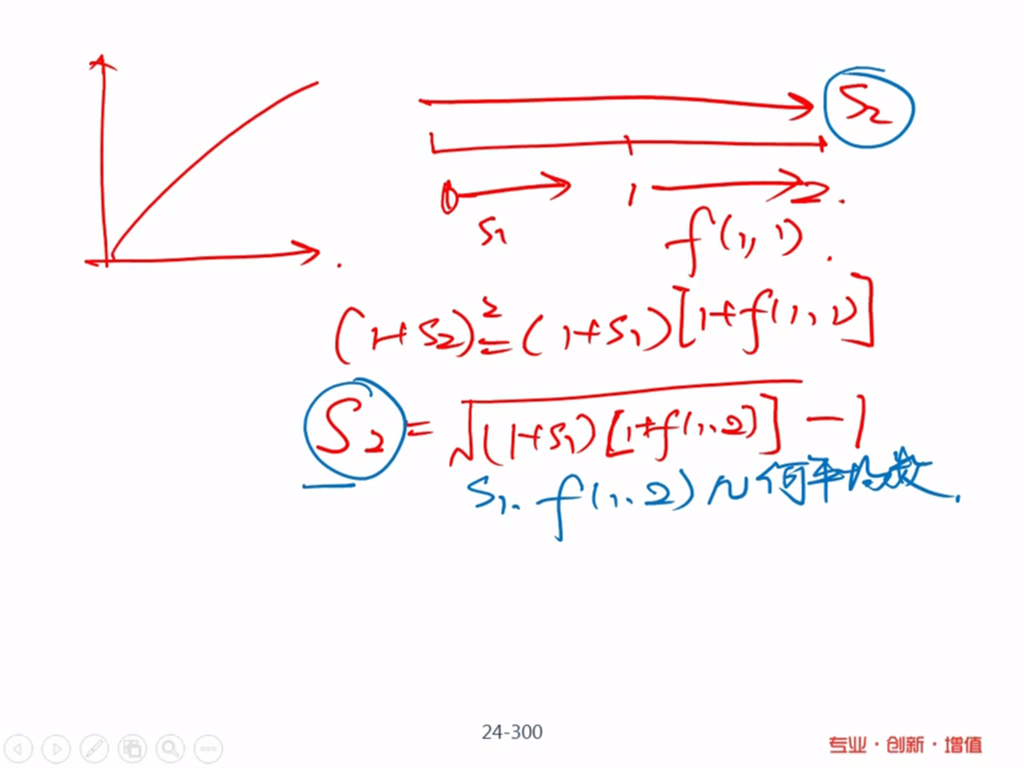 S₂
1 2.
S₁
f(1,1).
(1+S₂)²=(1+S₁)[1+f(1,1)]
S₂=√(1+S₁)[1+f(1.2)] -1
S₁. f(1.2) 几何平均数.
24-300
专业·创新·增值